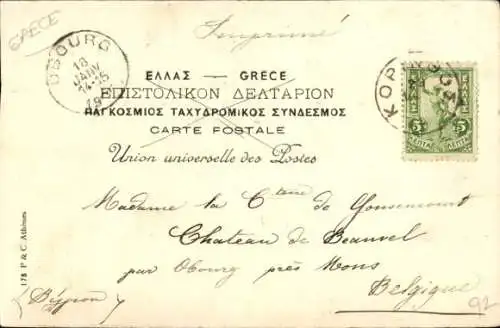 GRECE
Imprimé
OBOURG
18
JANV
14-15
19
ΚΟΡΙΝΘΟΣ
ΕΛΛΑΣ — GRÈCE
ΕΠΙΣΤΟΛΙΚΟΝ ΔΕΛΤΑΡΙΟΝ
ΠΑΓΚΟΣΜΙΟΣ ΤΑΧΥΔΡΟΜΙΚΟΣ ΣΥΝΔΕΣΜΟΣ
CARTE POSTALE
Union universelle des Postes
ΕΛΛΑΣ
5 5
ΛΕΠΤΑ ΛΕΠΤΑ
Madame la Ctesse de
Chateau de Beauvel
par Obourg près Mons
Belgique
178 P & C. Athènes
92